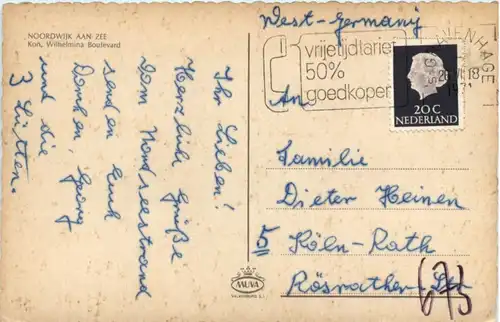 NOORDWIJK AAN ZEE
Kon. Wilhelmina Boulevard
Ihr Lieben!
Herzliche Grüße
vom Nordseestrand
senden Euch
Georg
und die
3
West-Germany
vrijetijdtarief
50%
goedkoper
'S GRAVENHAGE
20 C
NEDERLAND
An
Familie
Dieter Heinen
5 Köln-Rath
Rösrather-Str
673
MUVA